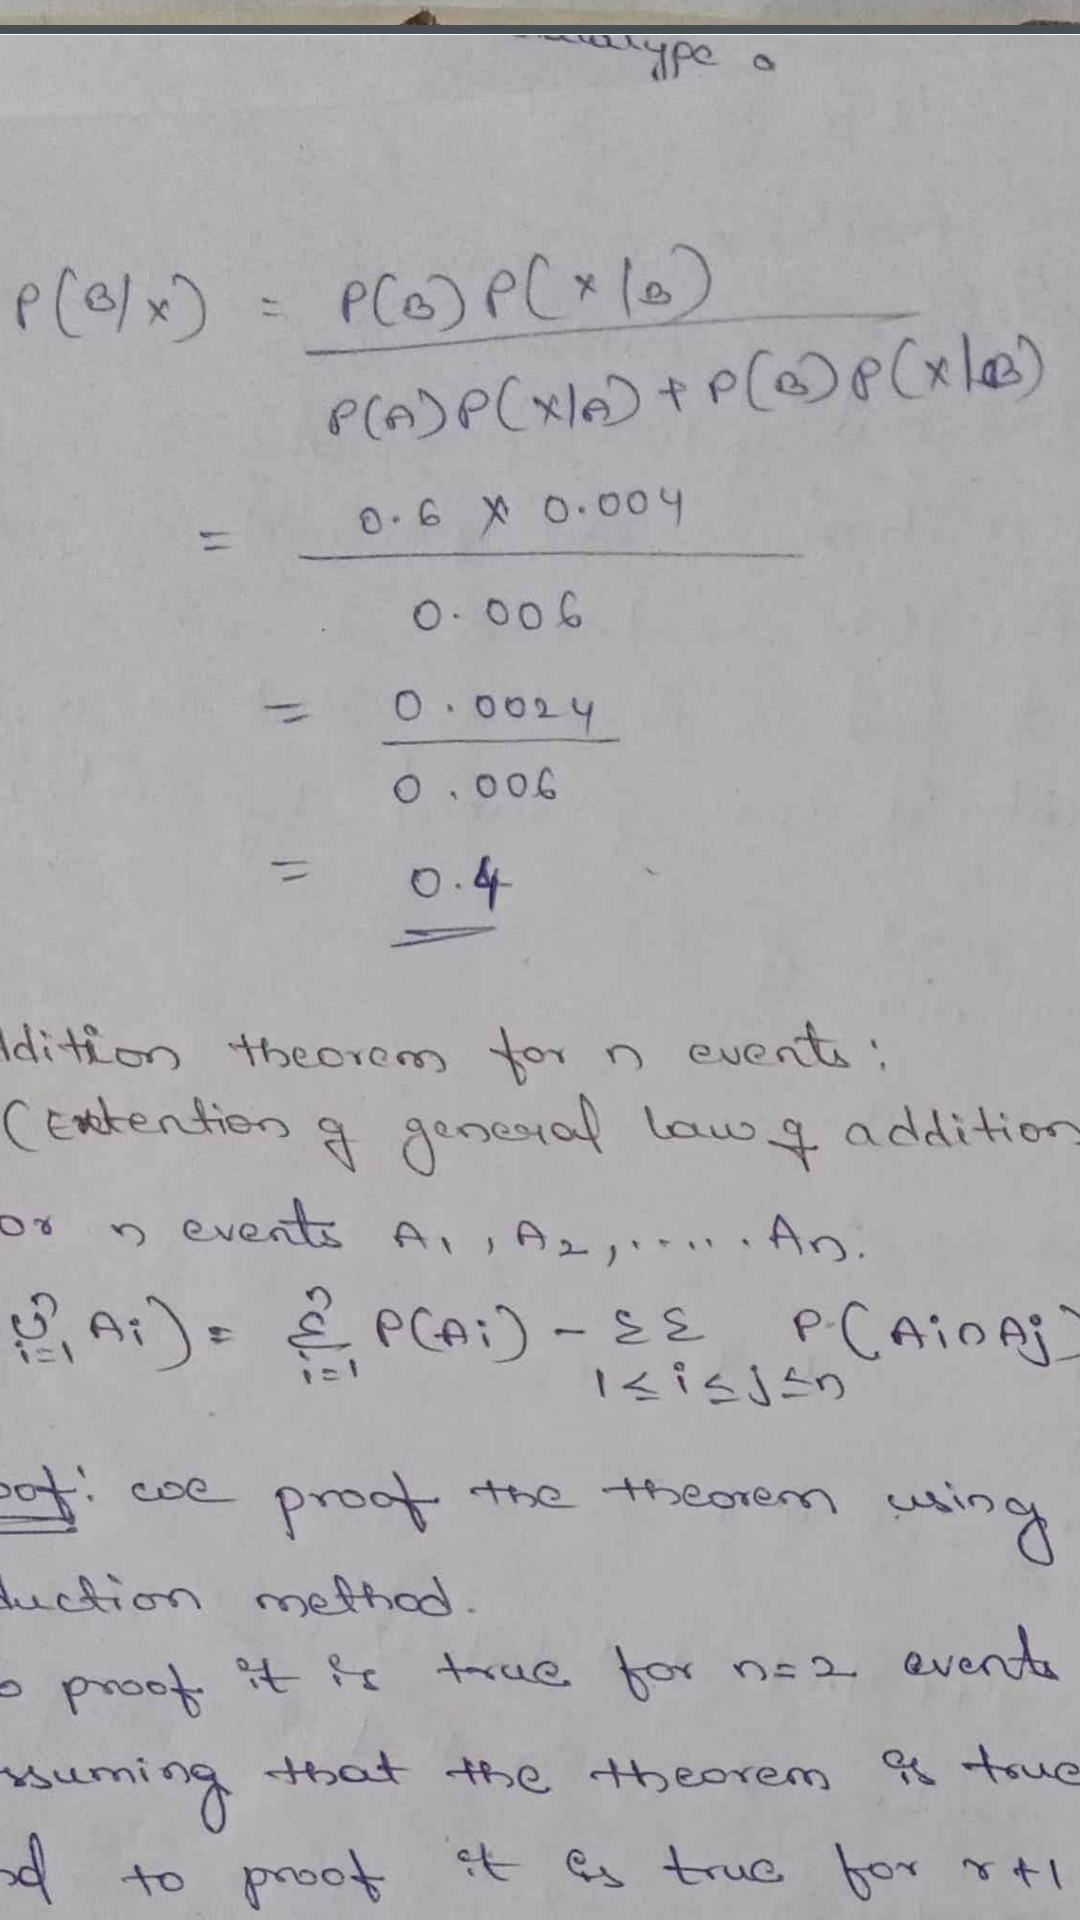 P(B/x) = P(B) P(x|B)
P(A) P(x|A) + P(B) P(x|B)
= 0.6 x 0.004
0.006
= 0.0024
0.006
= 0.4
ddition theorem for n events:
(Extention of general law of addition
or n events A1, A2, ..... An.
n∪i=1 Ai) = nΣi=1 P(Ai) - ΣΣ P(Ai∩Aj)
1≤i≤j≤n
oof: we proof the theorem using
duction method.
o proof it is true for n=2 events
ssuming that the theorem is true
nd to proof it is true for r+1